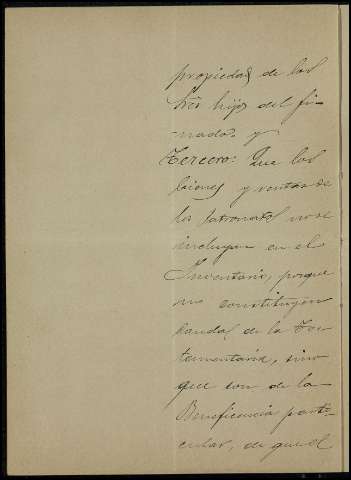 propiedad de los
tres hijos del fi-
nado. y
Tercero: Que los
bienes y rentas de
los Patronatos no se
incluyen en el
Inventario, porque
no constituyen
caudal de la Tes-
tamentaria, sino
que son de la
Beneficencia parti-
cular, de que el